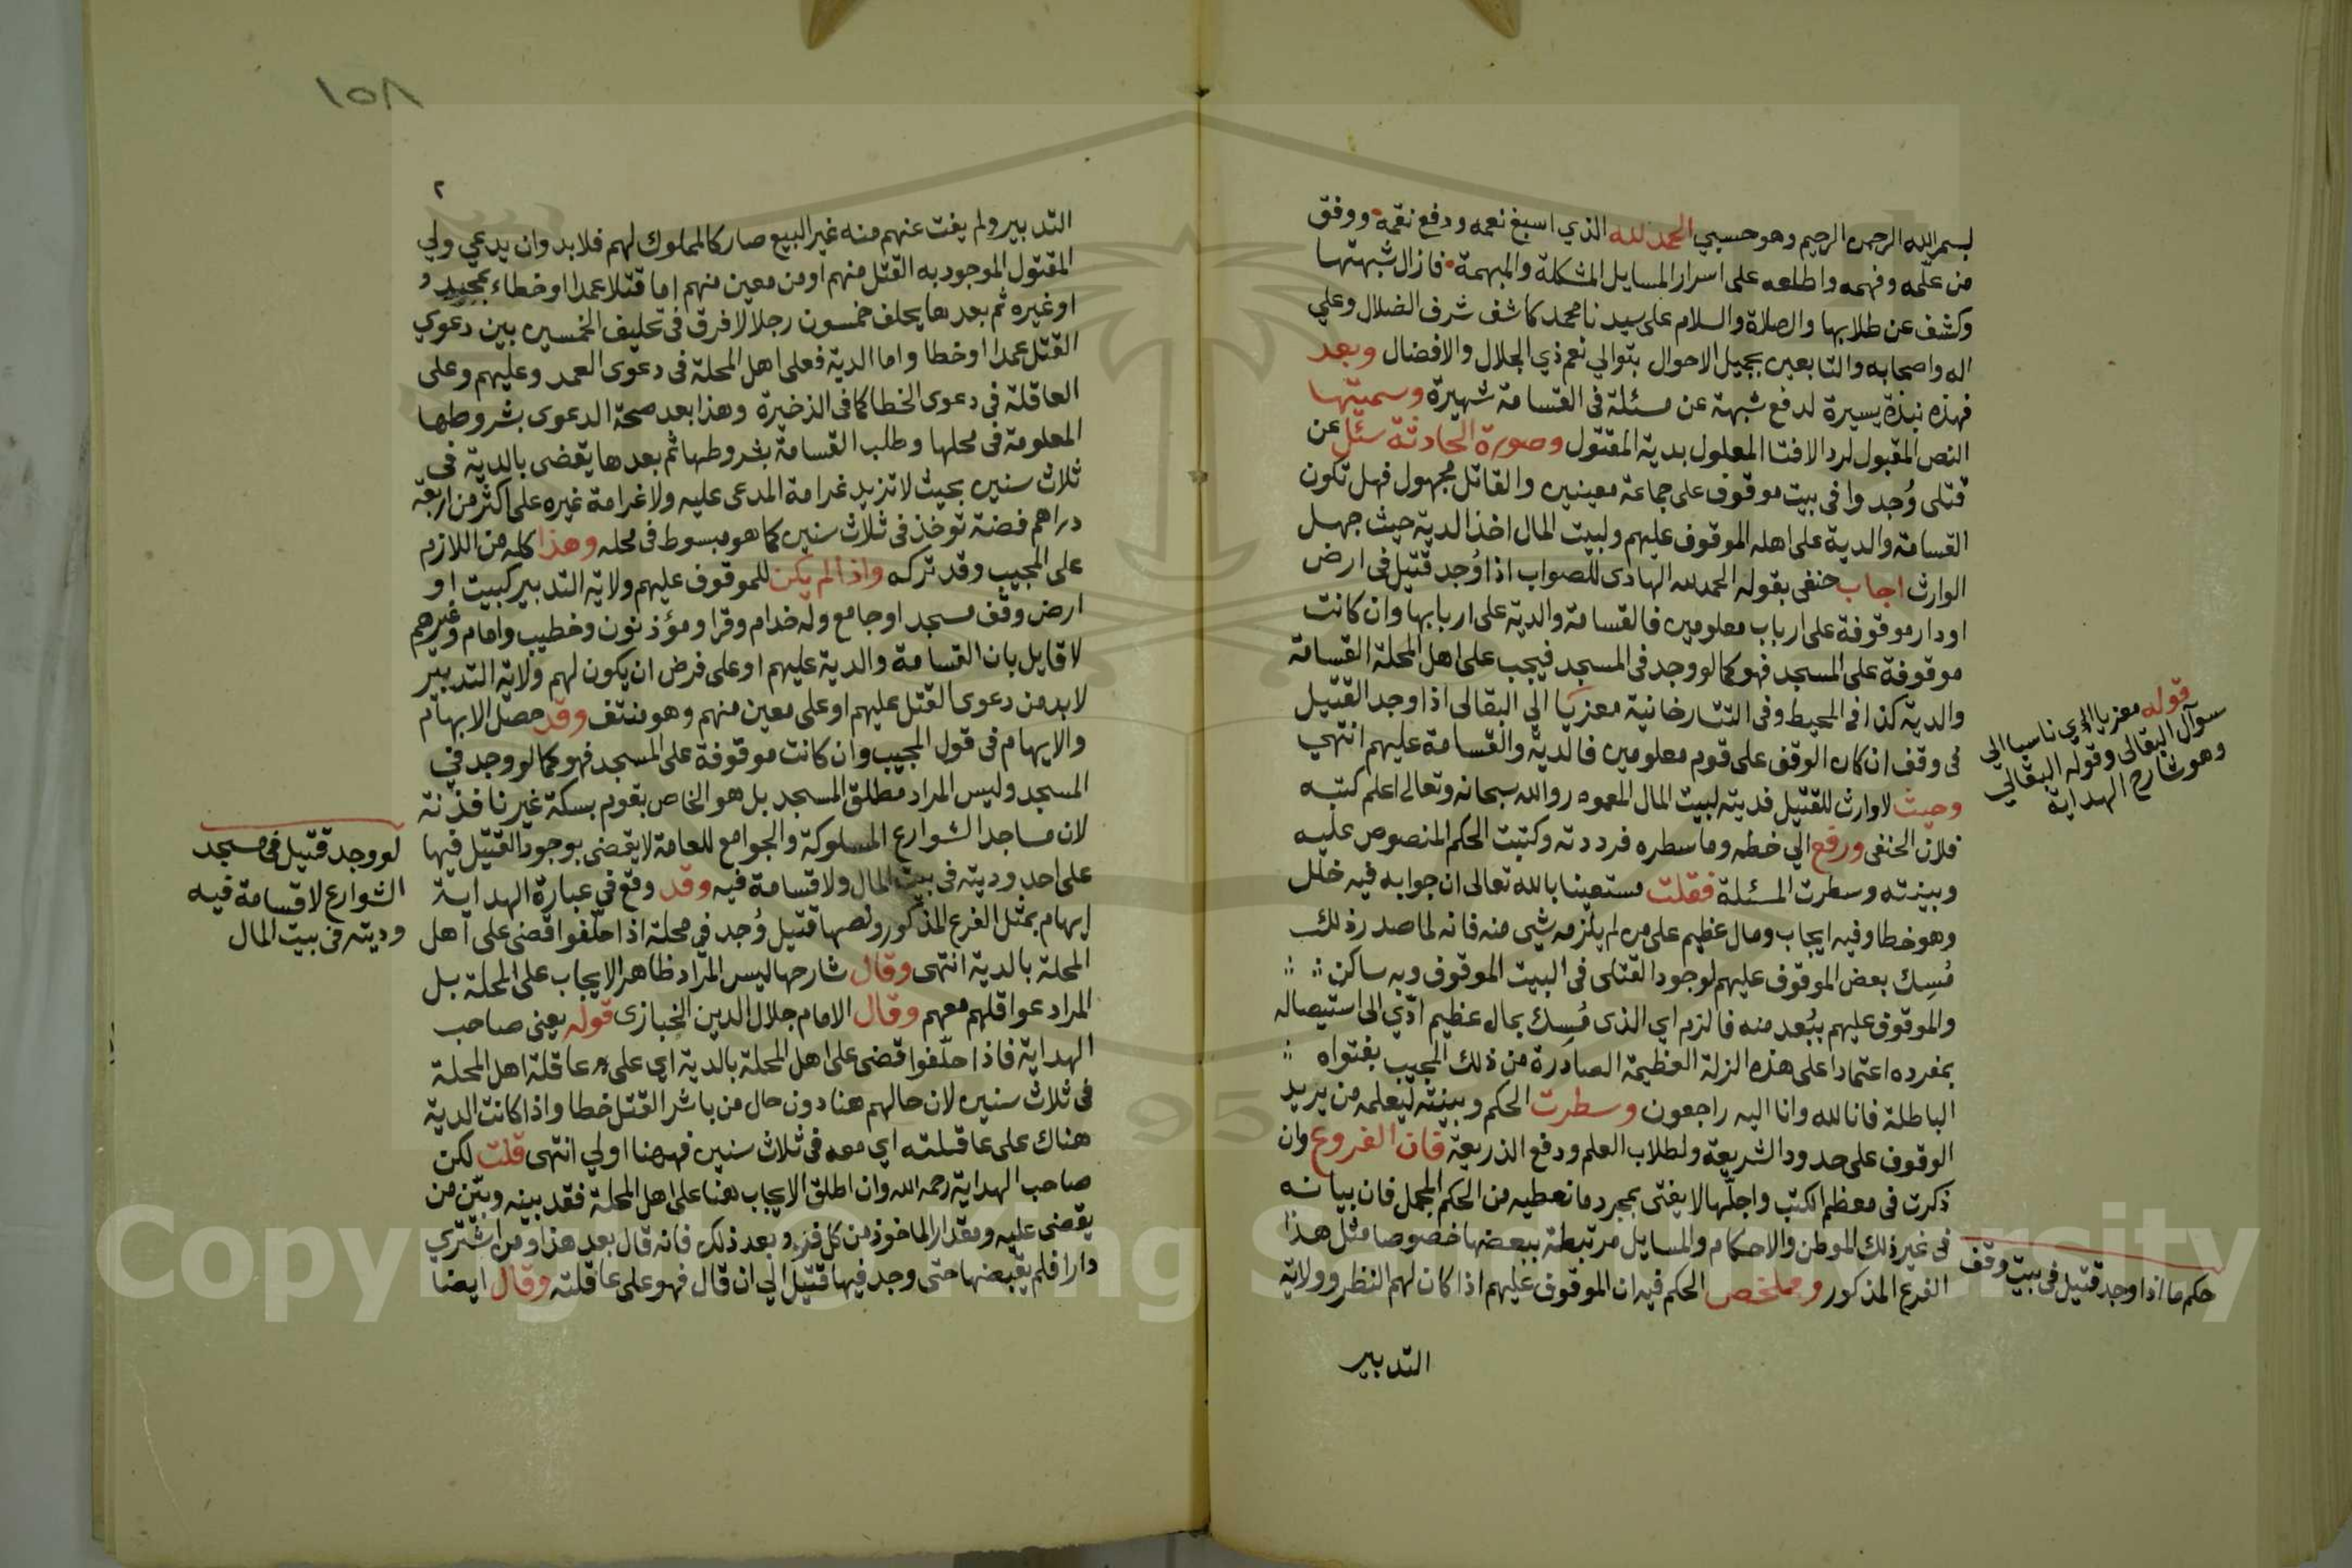 بسم الله الرحمن الرحيم وهو حسبي الحمد لله الذي اسبغ نعمه ودفع نقمه ووفق
من علمه وفهمه واطلعه على اسرار المسايل المشكلة والمبهمة فازال شبهتها
وكشف عن طلابها والصلاة والسلام على سيدنا محمد كاشف شرف الضلال وعلي
اله واصحابه والتابعين بجميل الاحوال بتوالي نعم ذي الجلال والافضال وبعد
فهذه نبذة يسيرة لدفع شبهة عن مسئلة في القسامة شهيرة وسميتها
النص المقبول لرد الافتا المعلول بدية المقتول وصورة الحادثة سئل عن
قتلى وُجدوا في بيت موقوف على جماعة معينين والقاتل مجهول فهل تكون
القسامة والدية على اهله الموقوف عليهم ولبيت المال اخذ الدية حيث جهل
الوارث اجاب حنفى بقوله الحمد لله الهادى للصواب اذا وُجد قتيل في ارض
او دار موقوفة على ارباب معلومين فالقسامة والدية على اربابها وان كانت
موقوفة على المسجد فهو كما لو وجد في المسجد فيجب على اهل المحلة القسامة
والدية كذا في المحيط وفي التتارخانية معزيا الي البقالى اذا وجد القتيل
في وقف ان كان الوقف على قوم معلومين فالدية والقسامة عليهم انتهي
وحيث لا وارث للقتيل فديته لبيت المال المعمور والله سبحانه وتعالى اعلم كتبه
فلان الحنفى ورفع الي خطه وما سطره فرددته وكتبت الحكم المنصوص عليه
وبينته وسطرت المسئلة فقلت مستعينا بالله تعالى ان جوابه فيه خلل
وهو خطا وفيه ايجاب ومال عظيم على من لم يلزمه شي منه فانه لما صدر ذلك
مُسِك بعض الموقوف عليهم لوجود القتلى في البيت الموقوف وبه ساكن
والموقوف عليهم ببُعد منه فالزم اي الذى مُسِك بمال عظيم ادّي الى استيصاله
بمفرده اعتمادا على هذه الزلة العظيمة الصادرة من ذلك المجيب بفتواه
الباطلة فانا لله وانا اليه راجعون وسطرت الحكم وبينته ليعلمه من يريد
الوقوف على حدود الشريعة ولطلاب العلم ودفع الذريعة فان الفروع وان
ذكرت في معظم الكتب واجلّها لا يفتى بمجرد ما نعطيه من الحكم المجمل فان بيانه
في غير ذلك الموطن والاحكام والمسايل مرتبطة ببعضها خصوصا مثل هذا
الفرع المذكور وملخص الحكم فيه ان الموقوف عليهم اذا كان لهم النظر وولاية
التدبير
قوله معزيا اي ناسبا الي
سوآل البقالى وقوله البقالي
وهو شارح الهداية
حكم ما اذا وجد قتيل في بيت وقف
١٥٨
٢
التدبير ولم يفت عنهم منه غير البيع صار كالمملوك لهم فلابد وان يدعي ولي
المقتول الموجود به القتل منهم او من معين منهم اما قتلا عمدا او خطاء
او غيره ثم بعدها يحلف خمسون رجلا لا فرق في تحليف الخمسين بين دعوي
القتل عمدا او خطا واما الدية فعلى اهل المحلة في دعوى العمد وعليهم وعلى
العاقلة في دعوى الخطا كما في الذخيرة وهذا بعد صحة الدعوى بشروطها
المعلومة في محلها وطلب القسامة بشروطها ثم بعدها يقضى بالدية في
ثلاث سنين بحيث لا تزيد غرامة المدعى عليه ولا غرامة غيره على اكثر من اربعة
دراهم فضة توخذ في ثلاث سنين كما هو مبسوط في محله وهذا كله من اللازم
على المجيب وقد تركه واذا لم يكن للموقوف عليهم ولاية التدبير كبيت او
ارض وقف مسجد او جامع وله خدام وقرا ومؤذنون وخطيب وامام وغيرهم
لا قايل بان القسامة والدية عليهم او على فرض ان يكون لهم ولاية التدبير
لابد من دعوى القتل عليهم او على معين منهم وهو منتف وقد حصل الابهام
والايهام في قول المجيب وان كانت موقوفة على المسجد فهو كما لو وجد في
المسجد وليس المراد مطلق المسجد بل هو الخاص بقوم بسكة غير نافذة
لان مساجد الشوارع المسلوكة والجوامع للعامة لا يقضى بوجود القتيل فيها
على احد وديته في بيت المال ولا قسامة فيه وقد وقع في عبارة الهداية
ايهام بمثل الفرع المذكور ونصها قتيل وُجد في محلة اذا حلّفوا قضى على اهل
المحلة بالدية انتهى وقال شارحها ليس المراد ظاهر الايجاب على المحلة بل
المراد عواقلهم معهم وقال الامام جلال الدين الخبازى قوله يعنى صاحب
الهداية فاذا حلّفوا قضى على اهل المحلة بالدية اي على عاقلة اهل المحلة
في ثلاث سنين لان حالهم هنا دون حال من باشر القتل خطا واذا كانت الدية
هناك على عاقلته اي معه في ثلاث سنين فههنا اولي انتهى قلت لكن
صاحب الهداية رحمه الله وان اطلق الايجاب هنا على اهل المحلة فقد بينه وبيّن من
يقضى عليه ومقدار الماخوذ من كل فرد وبعد ذلك فانه قال بعد هذا ومن اشترى
دارا فلم يقبضها حتى وجد فيها قتيل الي ان قال فهو على عاقلته وقال ايضا
لو وجد قتيل في مسجد
الشوارع لا قسامة فيه
وديته في بيت المال
Copyright © King Saud University